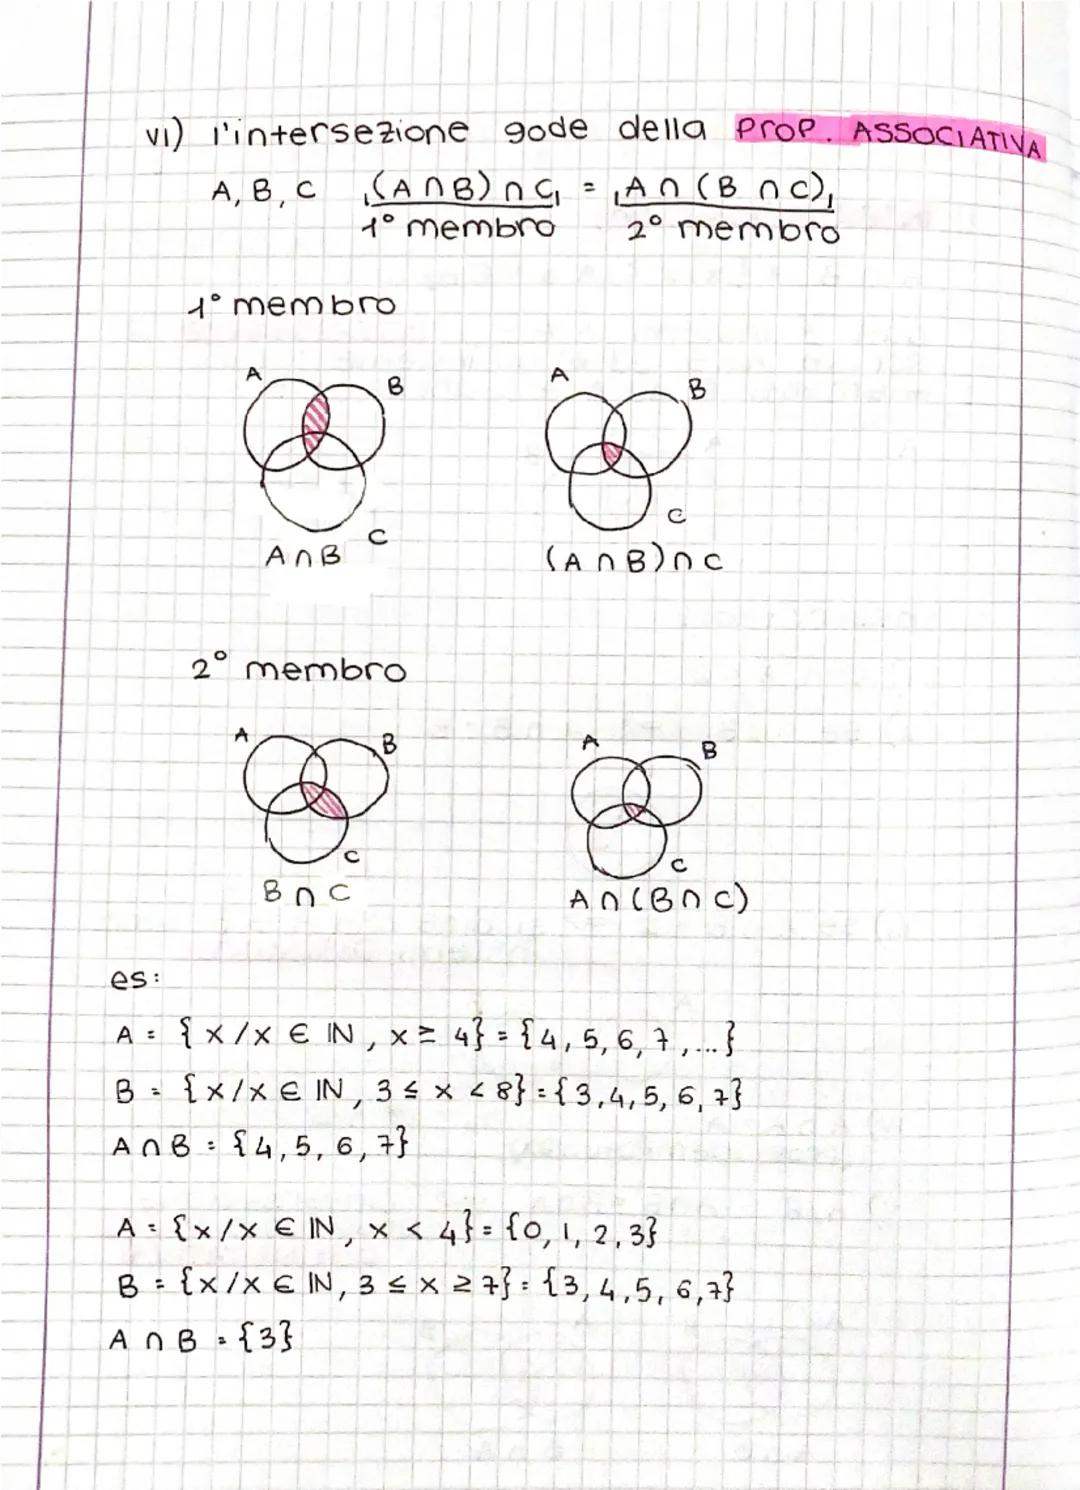 VI) l'intersezione gode della PROP. ASSOCIATIVA
A, B, C (A ∩ B) ∩ C = A ∩ (B ∩ C)
1° membro 2° membro
1° membro
A B A B
C C
A ∩ B (A ∩ B) ∩ C
2° membro
A B A B
C C
B ∩ C A ∩ (B ∩ C)
es:
A = {x/x ∈ IN, x ≥ 4} = {4, 5, 6, 7, ...}
B = {x/x ∈ IN, 3 ≤ x < 8} = {3, 4, 5, 6, 7}
A ∩ B = {4, 5, 6, 7}
A = {x/x ∈ IN, x < 4} = {0, 1, 2, 3}
B = {x/x ∈ IN, 3 ≤ x ≥ 7} = {3, 4, 5, 6, 7}
A ∩ B = {3}